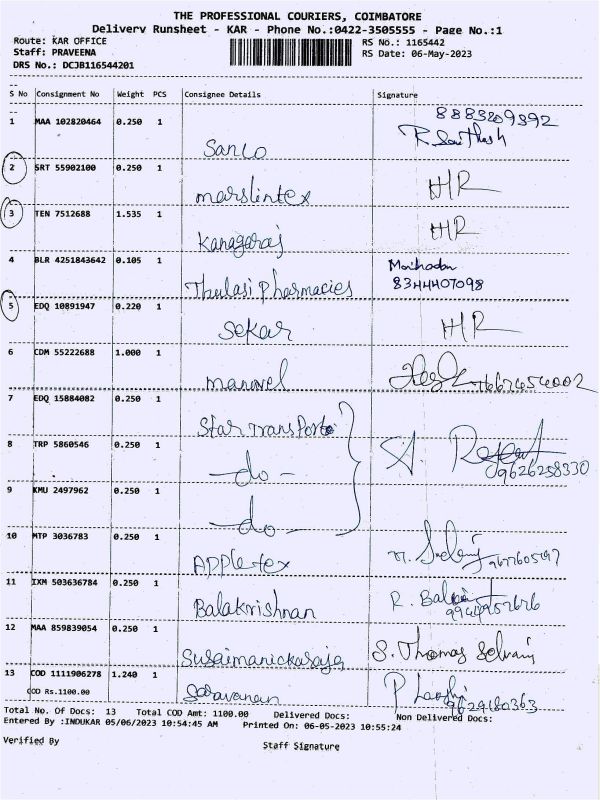 THE PROFESSIONAL COURIERS, COIMBATORE
Delivery Runsheet - KAR - Phone No.:0422-3505555 - Page No.:1
Route: KAR OFFICE RS No.: 1165442
Staff: PRAVEENA RS Date: 06-May-2023
DRS No.: DCJB116544201
S No Consignment No Weight PCS Consignee Details Signature
1 MAA 102820464 0.250 1
Sanco
2 SRT 55902100 0.250 1 H/R
marslintex
3 TEN 7512688 1.535 1 H/R
Kanagaraj
4 BLR 4251843642 0.105 1
Thulasi Pharmacies 8344407098
5 EDQ 10891947 0.220 1 H/R
Sekar
6 CDM 55222688 1.000 1
manovel
7 EDQ 15884082 0.250 1
Star Transports
8 TRP 5860546 0.250 1
- do - 9626258330
9 KMU 2497962 0.250 1
- do -
10 MTP 3036783 0.250 1
Apple tex
11 IXM 503636784 0.250 1
Balakrishnan R.
12 MAA 859839054 0.250 1
Susaimanickaraja S. Thomas Selvam
13 COD 1111906278 1.240 1
COD Rs.1100.00 Saravanan 9629180363
Total No. Of Docs: 13 Total COD Amt: 1100.00 Delivered Docs: Non Delivered Docs:
Entered By :INDUKAR 05/06/2023 10:54:45 AM Printed On: 06-05-2023 10:55:24
Verified By Staff Signature